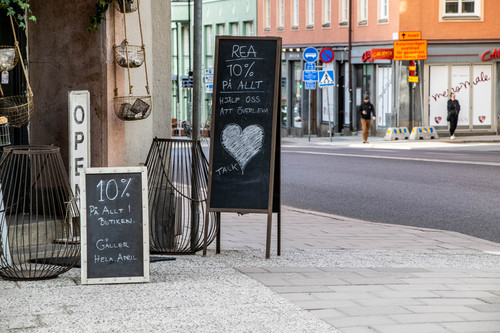 OPEN
REA
10%
PÅ ALLT
HJÄLP OSS
ATT ÖVERLEVA
TACK
10%
PÅ ALLT I
BUTIKEN.
GÄLLER
HELA APRIL